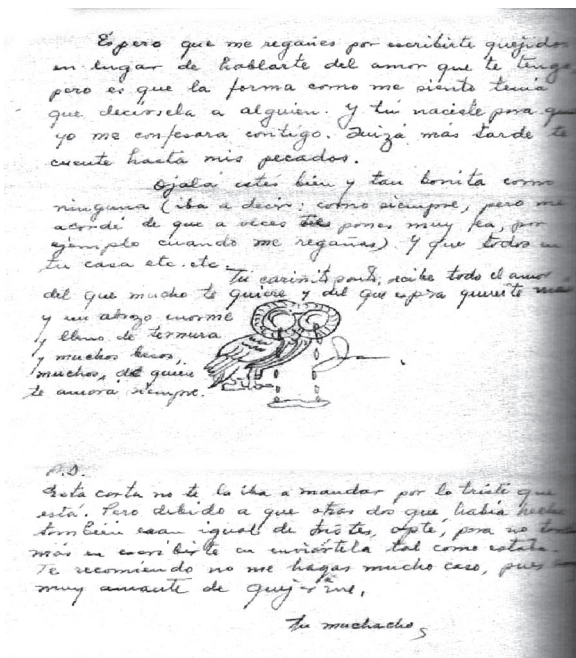 Espero que me regañes por escribirte quejidos
en lugar de hablarte del amor que te tengo,
pero es que la forma como me siento tenía
que decírsela a alguien. Y tú naciste para que
yo me confesara contigo. Quizá más tarde te
cuente hasta mis pecados.
Ojalá estés bien y tan bonita como
ninguna (iba a decir: como siempre, pero me
acordé de que a veces te pones muy fea, por
ejemplo cuando me regañas). Y que todos en
tu casa etc. etc.
Tu recibe todo el amor
del que mucho te quiere y del que espera quererte más
y un abrazo enorme
y lleno de ternura
y muchos besos,
muchos, de quien
te amará siempre.
P.D.
Esta carta no te la iba a mandar por lo triste que
está. Pero debido a que otras dos que había hecho
también eran igual de tristes, opté, para no
más en escribirte en enviártela tal como estaba.
Te recomiendo no me hagas mucho caso, pues
muy amante de quejarme.
Tu muchacho,